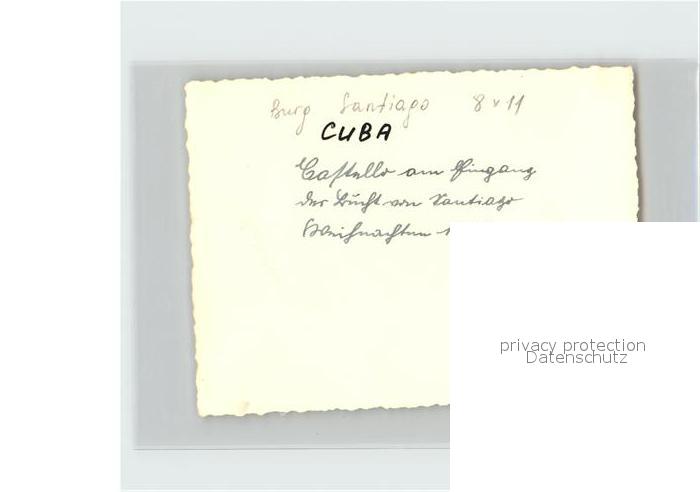 Burg Santiago 8 x 11
CUBA
Castello am Eingang
der Bucht von Santiago
Weihnachten 1
privacy protection
Datenschutz